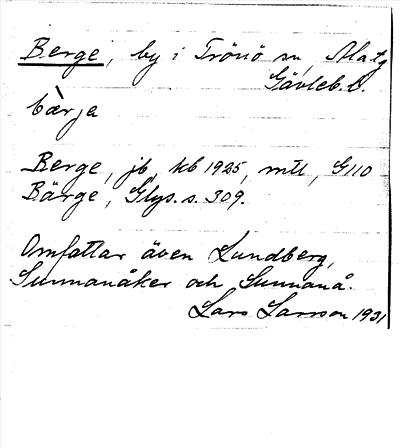 Berge, by i Trönö sn, Ala tg
Gävleb. l.
bàrja
Berge, jb, kb 1925, mtl, G110
Bärge, Glys. s. 309.
Omfattar även Lundberg,
Sunnanåker och Sunnanå.
Lars Larsson 1931